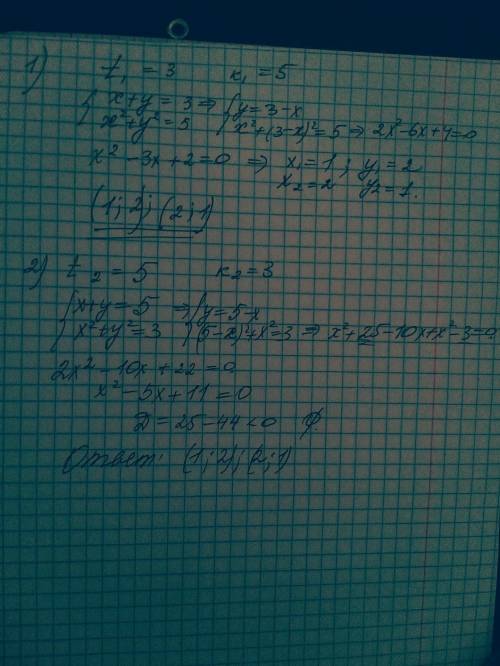 1) t₁ = 3 к₁ = 5
{ x+y = 3 ⇒ { y = 3-x
x²+y² = 5 x²+(3-x)² = 5 ⇒ 2x²-6x+4=0
x² - 3x + 2 = 0 ⇒ x₁ = 1 ; y₁ = 2
x₂ = 2 y₂ = 1.
(1; 2) ; (2; 1)
2) t₂ = 5 к₂ = 3
{ x+y = 5 ⇒ { y = 5-x
x²+y² = 3 (5-x)²+x² = 3 ⇒ x²+25-10x+x²-3=0
2x² - 10x + 22 = 0
x² - 5x + 11 = 0
D = 25 - 44 < 0 ∅.
Ответ: (1; 2) ; (2; 1)